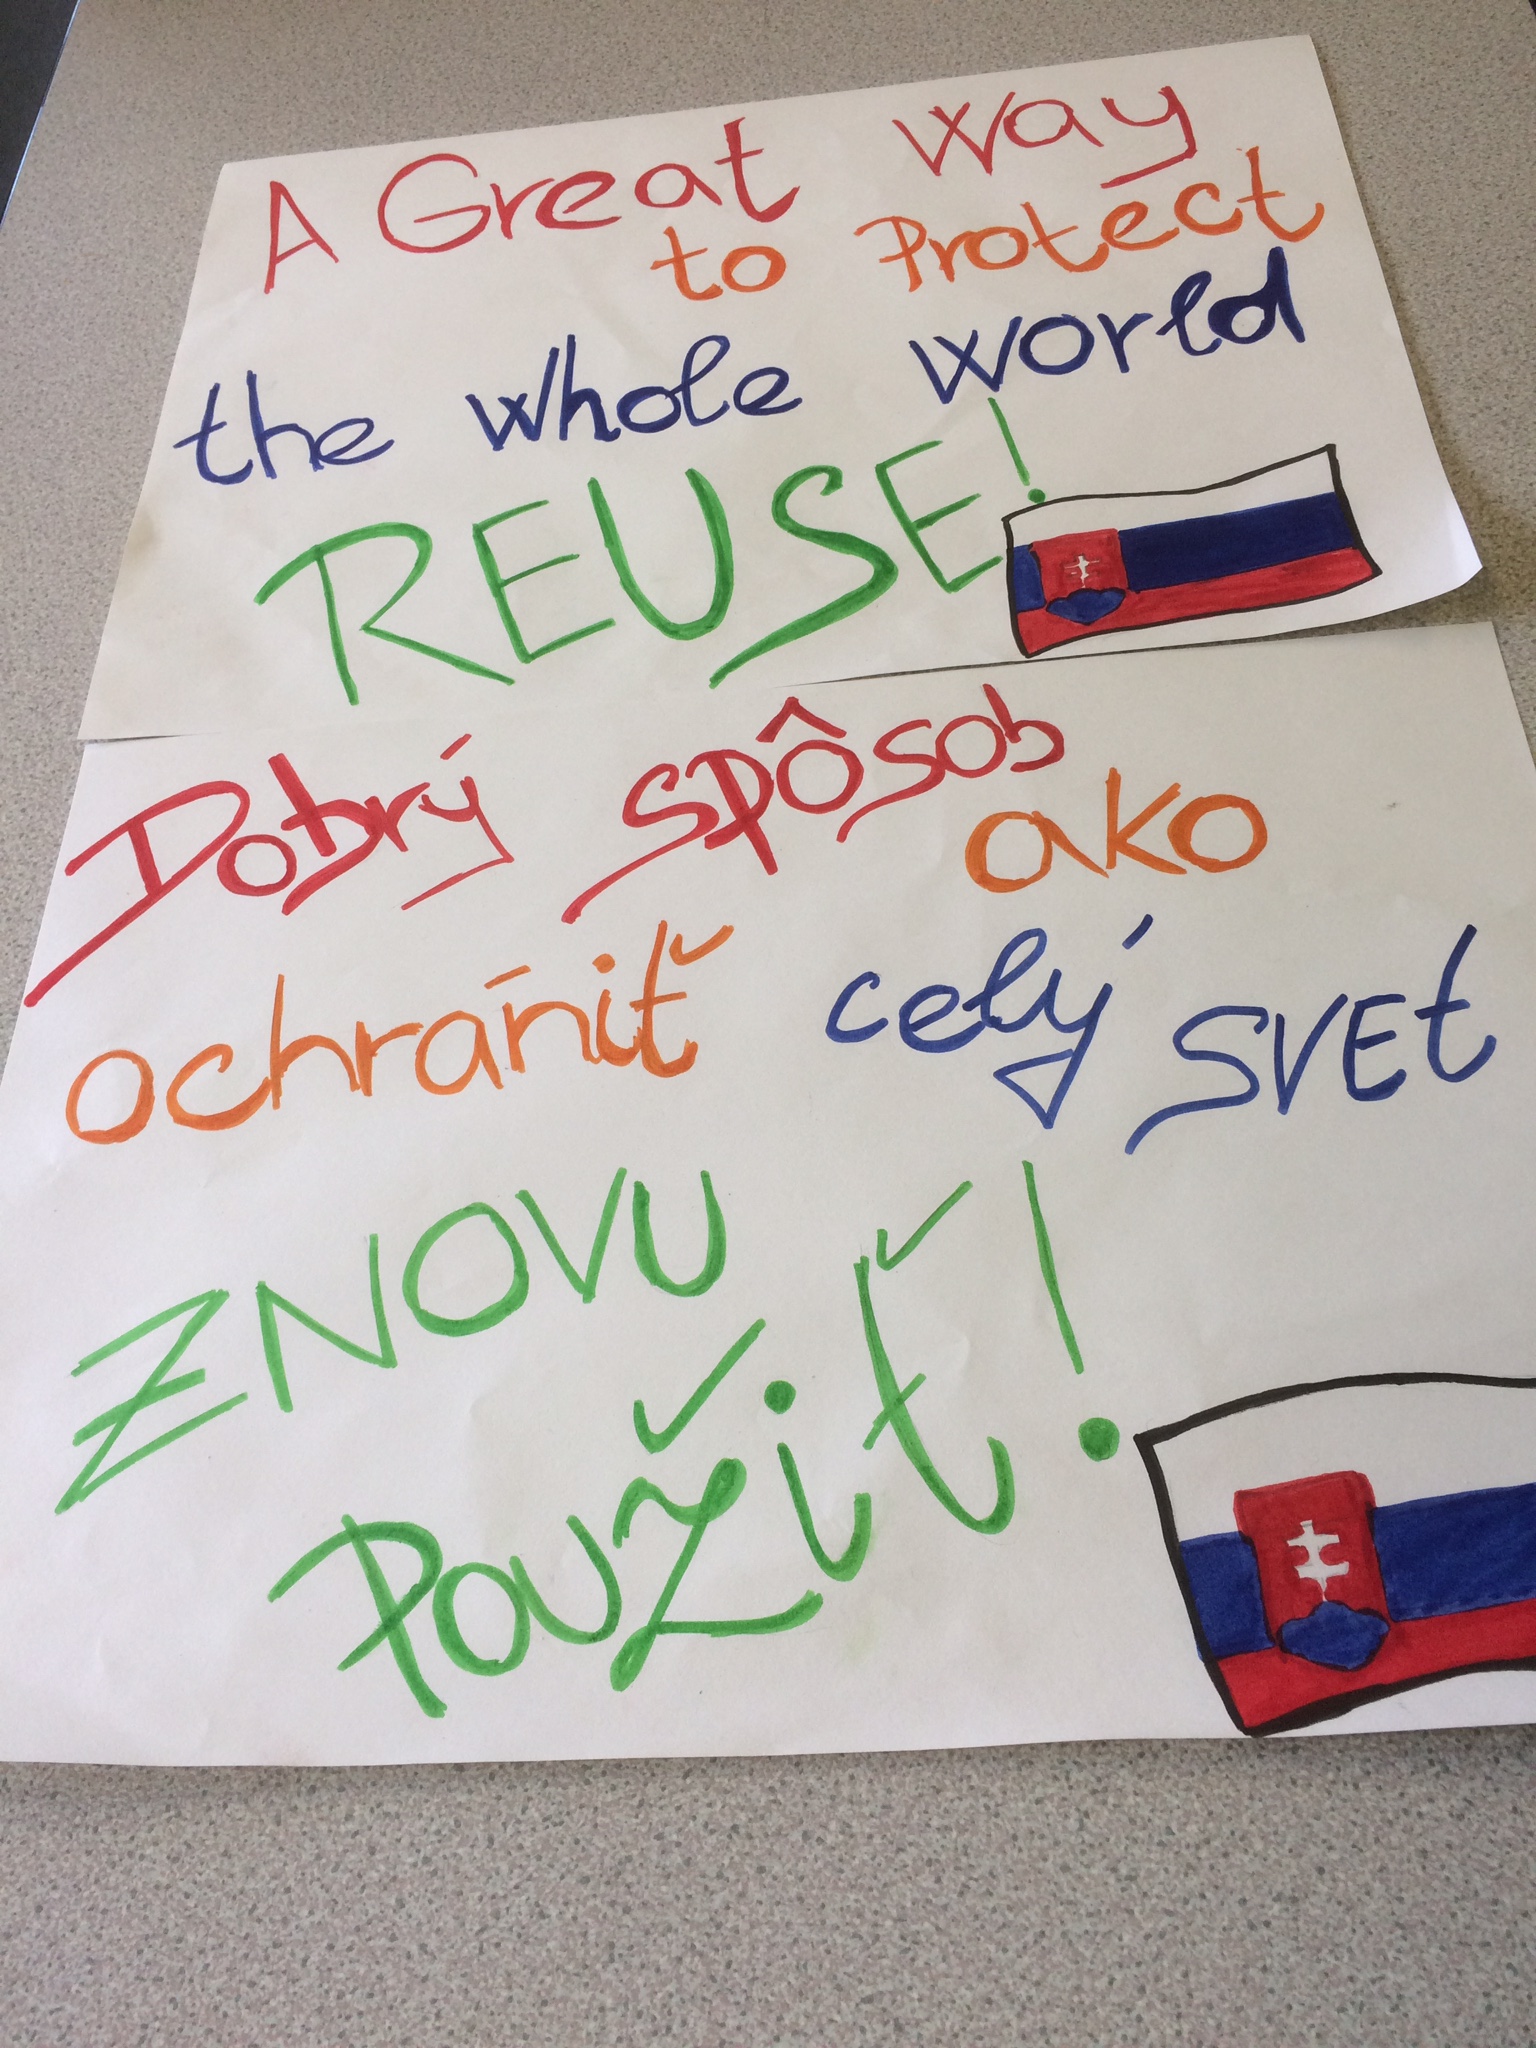 A Great way
to Protect
the whole world
REUSE!
Dobrý spôsob
ako
ochrániť celý svet
ZNOVU
Použiť!